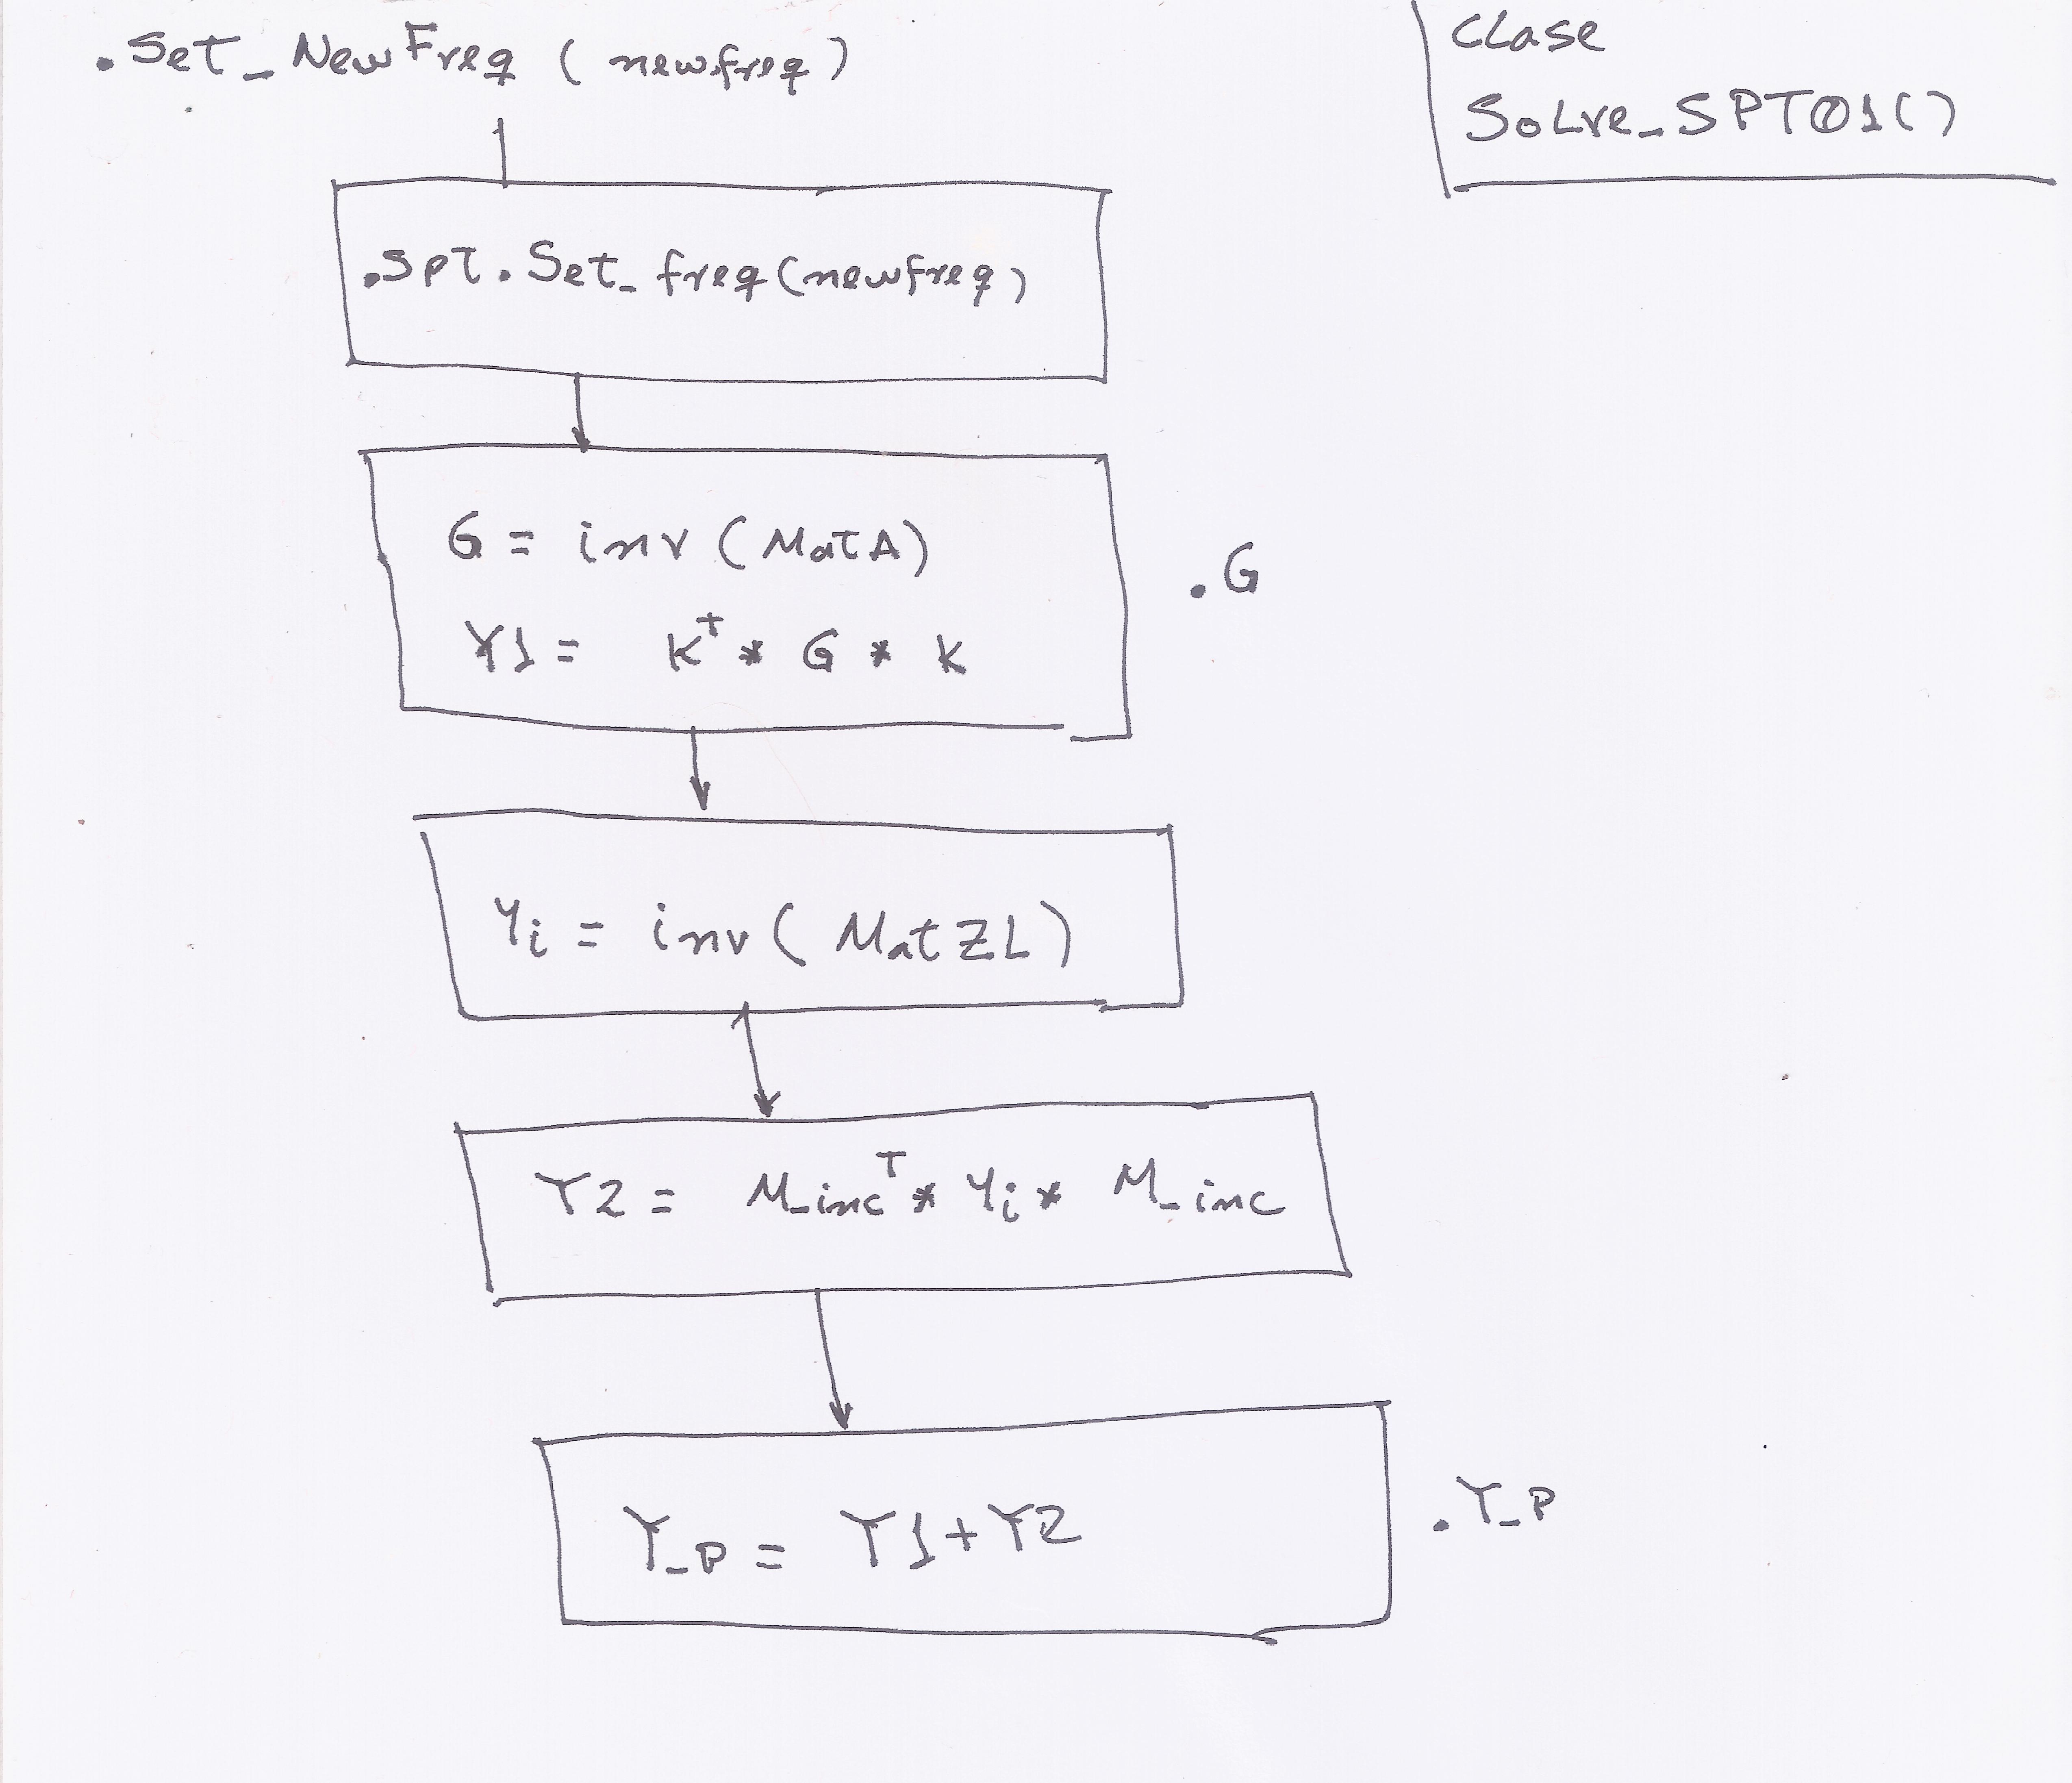 .Set_NewFreq (newfreq)
Clase
Solve_SPT01()
.spt.Set_freq(newfreq)
G = inv (MatA)
Y1 = K^T * G * K
.G
Yi = inv (MatZL)
Y2 = M_inc^T * Yi * M_inc
Y_P = Y1+Y2
.Y_P